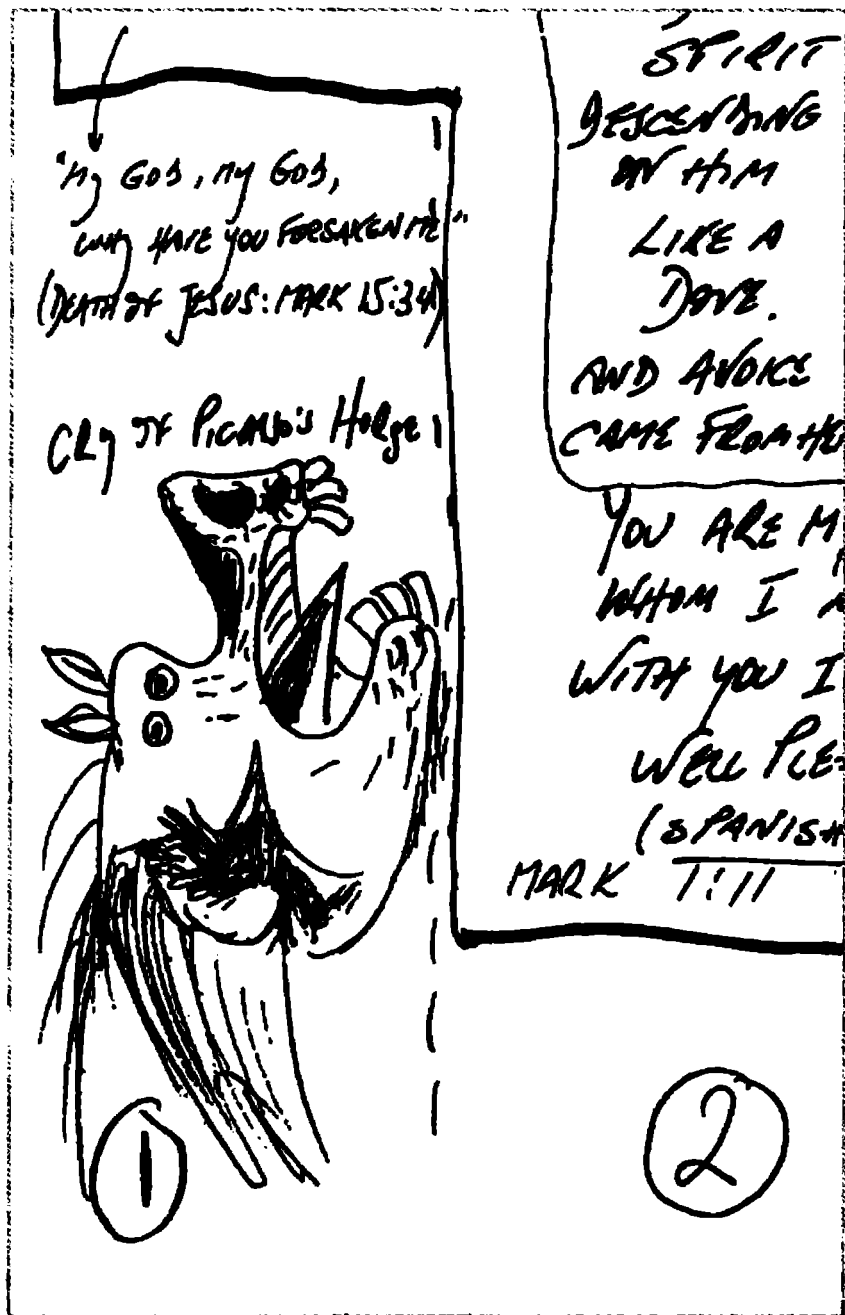 "My God, my God,
why have you forsaken me"
(Death of Jesus: Mark 15:34)
Cry of Picasso's Horse
1
SPIRIT
DESCENDING
ON HIM
LIKE A
DOVE.
AND A VOICE
CAME FROM HE
YOU ARE M
WHOM I
WITH YOU I
WELL PLE
(SPANISH
MARK 1:11
2